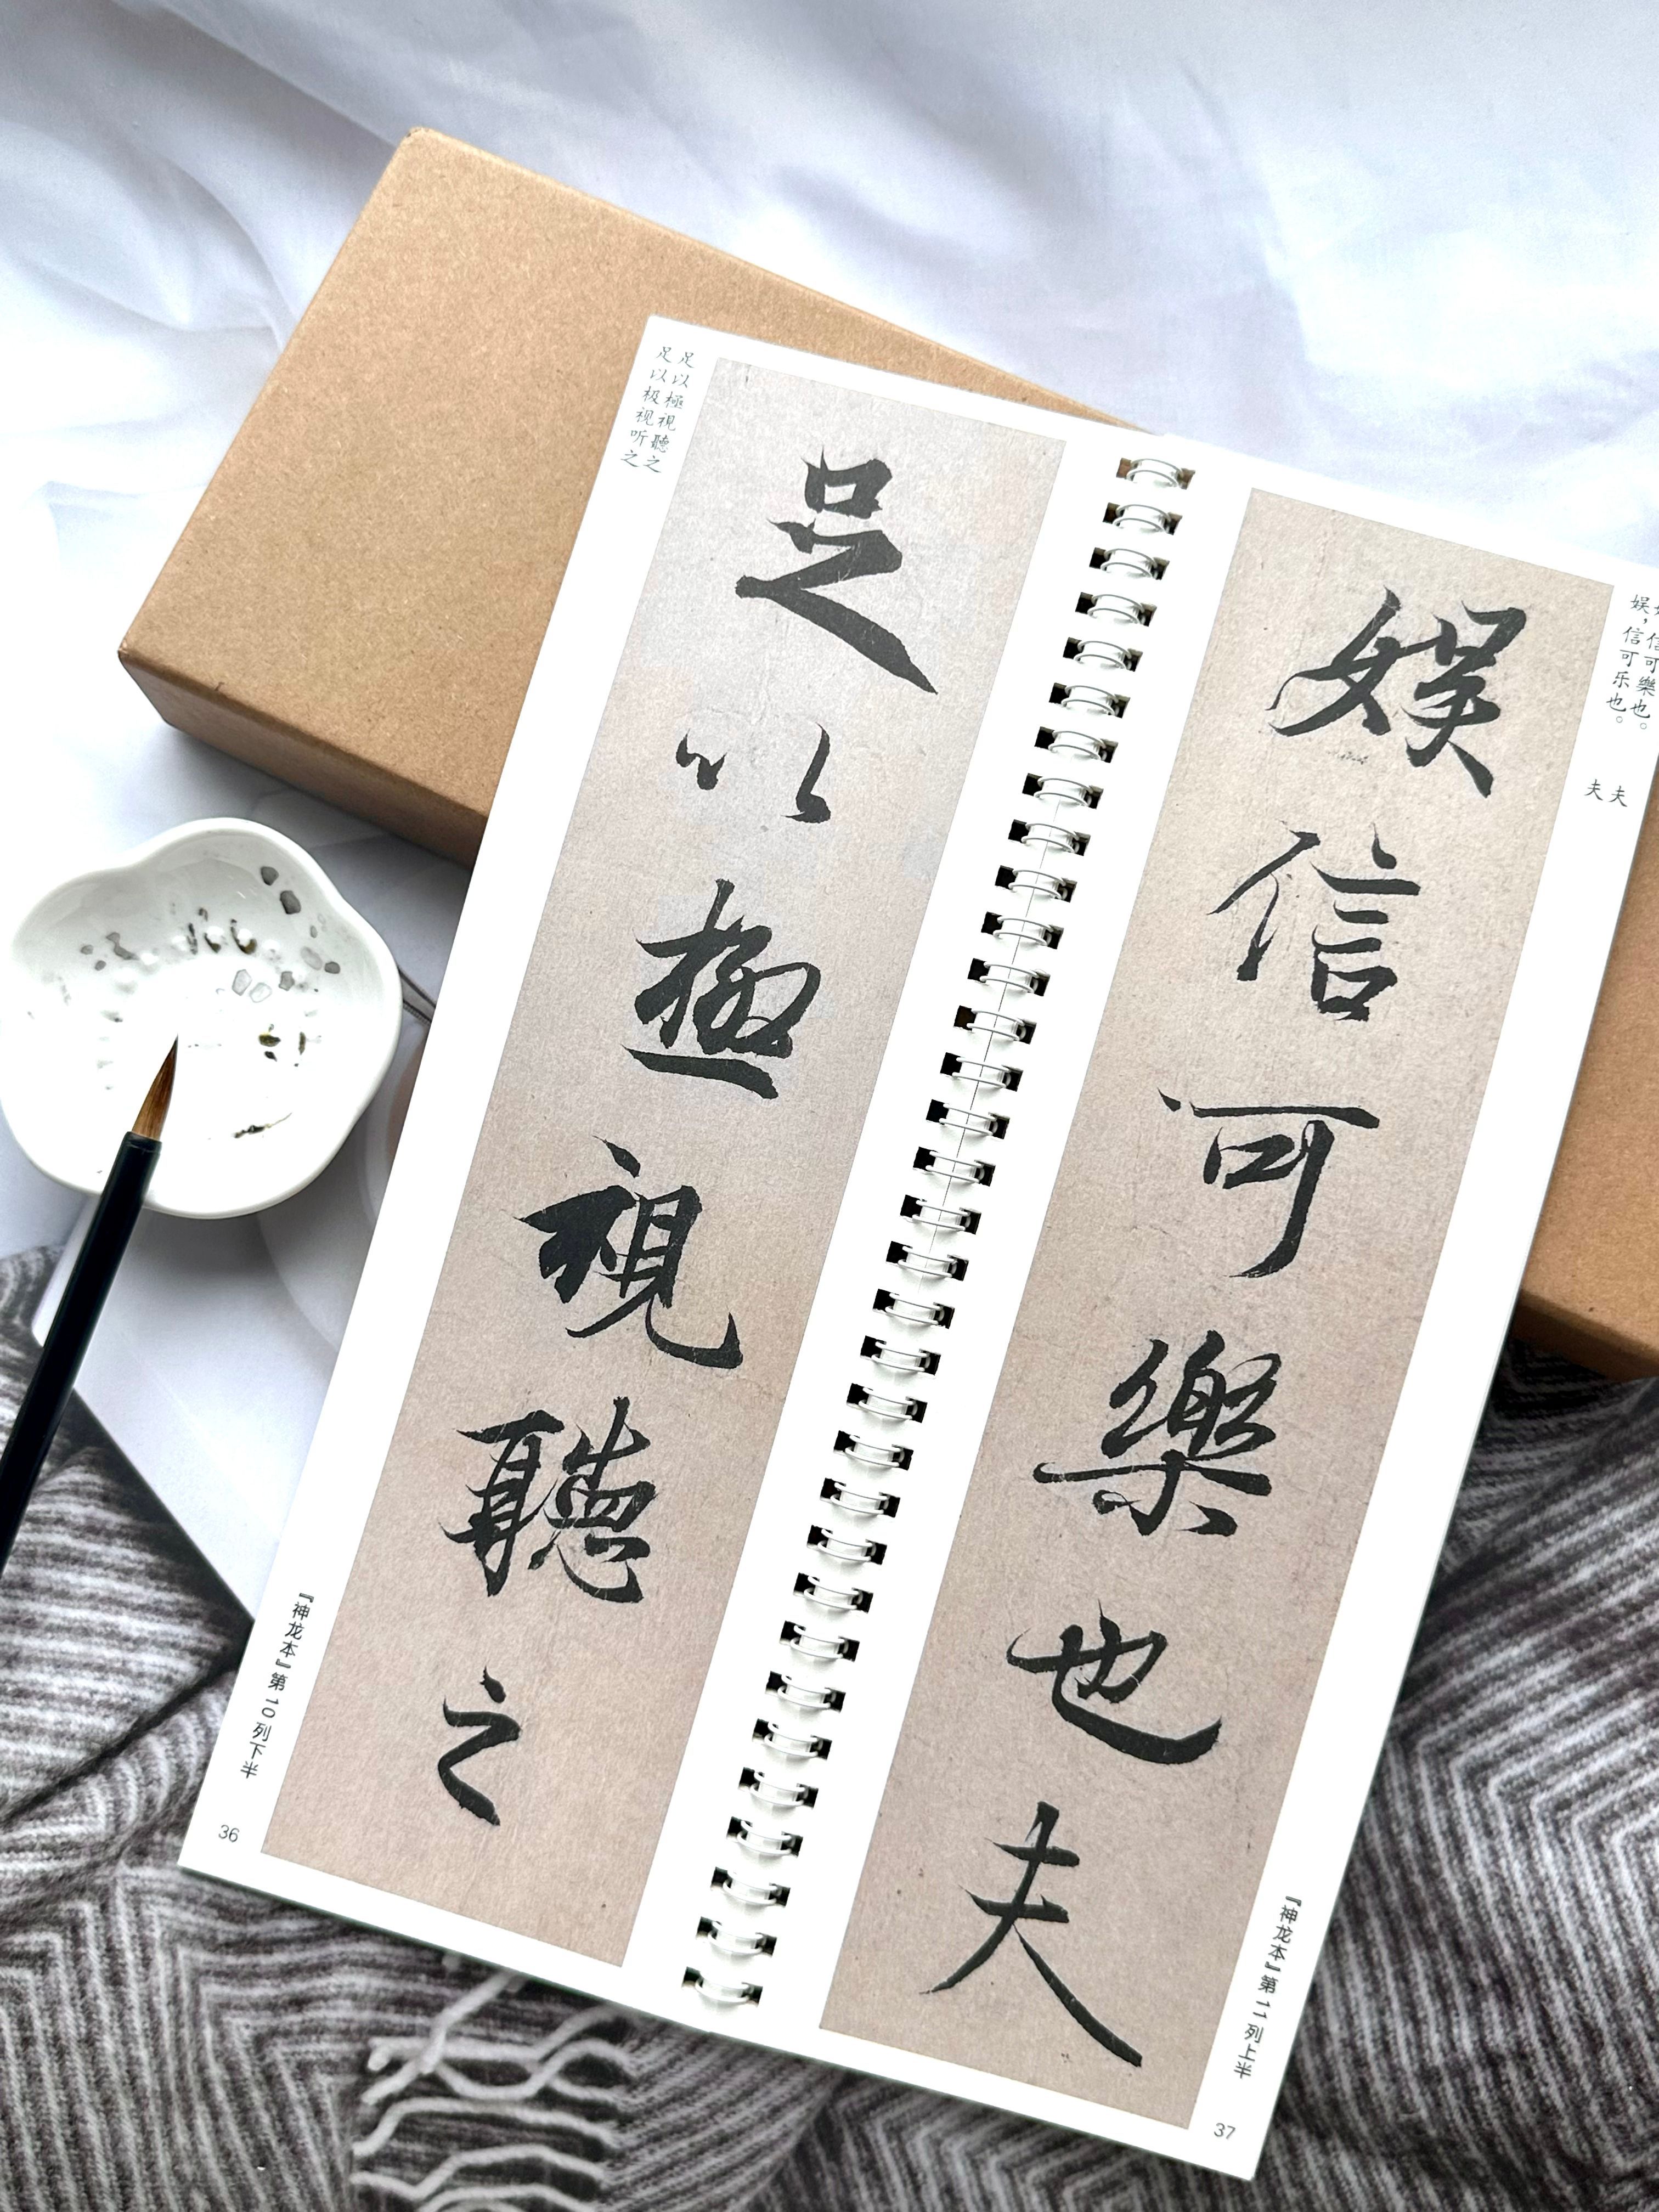 足以極視聽之
足以极视听之
足以極視聽之
『神龙本』第10列下半
36
娱信可樂也夫
信可樂也。
娱，信可乐也。
夫
夫
『神龙本』第11列上半
37